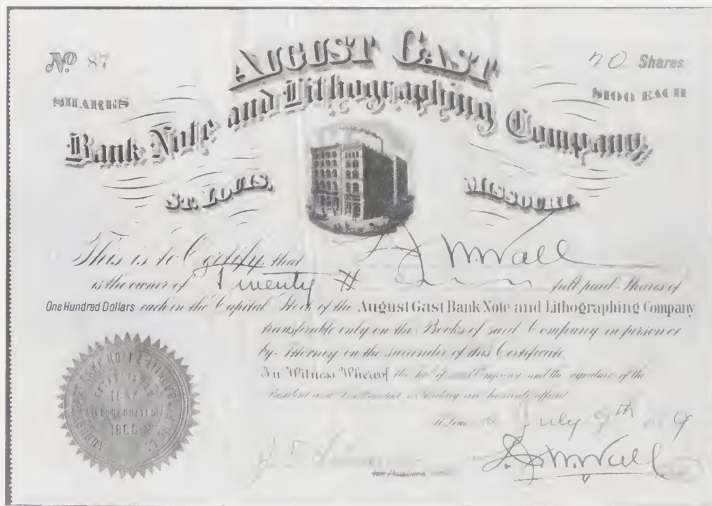 No 87
AUGUST GAST
20 Shares
SHARES
$100 EACH
Bank Note and Lithographing Company,
ST. LOUIS, MISSOURI.
This is to Certify that McNall
is the owner of Twenty full paid Shares of
One Hundred Dollars each in the Capital Stock of the August Gast Bank Note and Lithographing Company
transferable only on the Books of said Company in person or
by Attorney on the surrender of this Certificate.
In Witness Whereof the Seal of said Company and the signature of the
President and
July 9th
1880